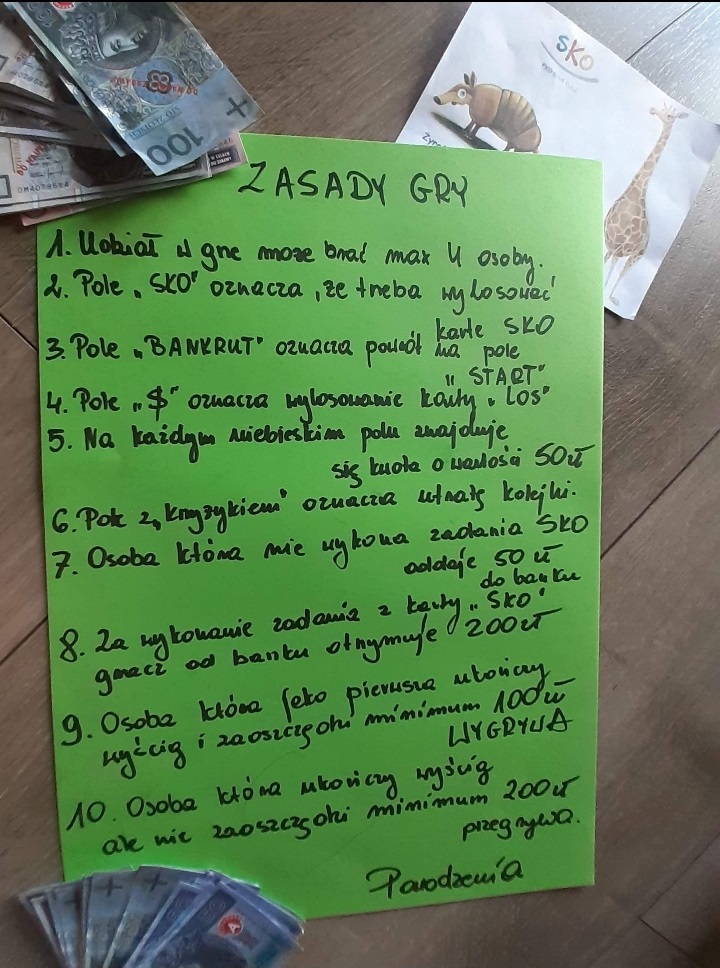 SKO
100
ZASADY GRY
1. Udział w grze może brać max 4 osoby.
2. Pole „SKO" oznacza, że treba wylosować
kartę SKO
3. Pole „BANKRUT" oznacza powrót na pole
„START"
4. Pole „$" oznacza wylosowanie karty „LOS"
5. Na każdym niebieskim polu znajduje
się kwota o wartości 50zł
6. Pole z „krzyżykiem" oznacza utratę kolejki.
7. Osoba która nie wykona zadania SKO
oddaje 50 zł
do banku
8. Za wykonanie zadania z karty „SKO"
gracz od banku otrzymuje 200zł
9. Osoba która jako pierwsza ukończy
wyścig i zaoszczędzi minimum 100zł
WYGRYWA
10. Osoba która ukończy wyścig
ale nie zaoszczędzi minimum 200zł
przegrywa.
Powodzenia